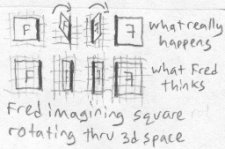 F F F what really
happens
F F what Fred
thinks
Fred imagining square
rotating thru 3d space